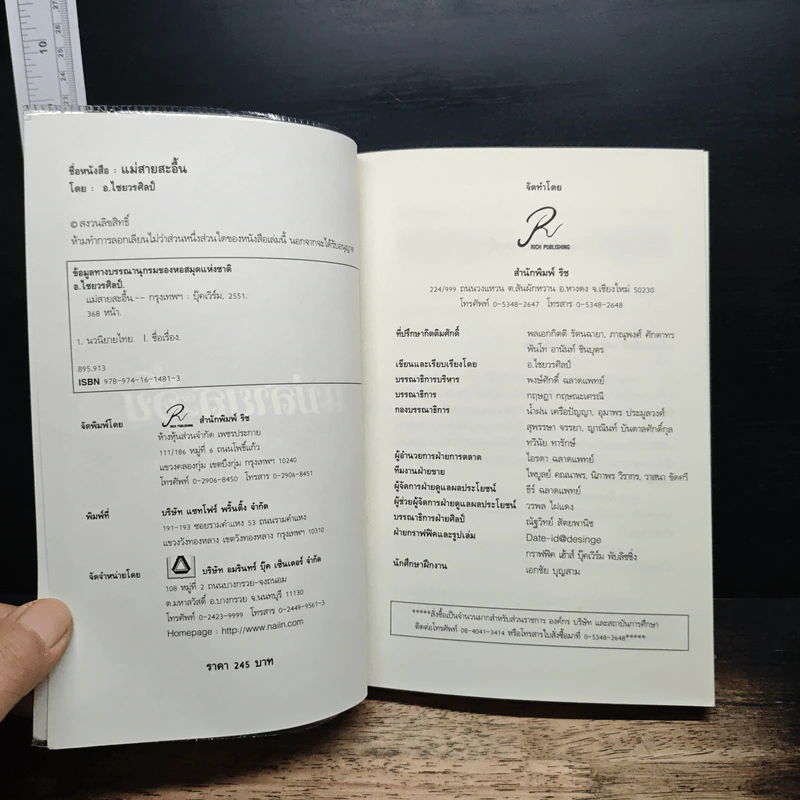 ชื่อหนังสือ : แม่สายสะอื้น
โดย : อ.ไชยวรศิลป์
© สงวนลิขสิทธิ์
ห้ามทำการลอกเลียนไม่ว่าส่วนหนึ่งส่วนใดของหนังสือเล่มนี้ นอกจากจะได้รับอนุญาต
ข้อมูลทางบรรณานุกรมของหอสมุดแห่งชาติ
อ.ไชยวรศิลป์.
แม่สายสะอื้น.-- กรุงเทพฯ : บุ๊คเวิร์ม, 2551.
368 หน้า.
1. นวนิยายไทย. I. ชื่อเรื่อง.
895.913
ISBN 978-974-16-1481-3
จัดพิมพ์โดย
RICH PUBLISHING
สำนักพิมพ์ ริช
ห้างหุ้นส่วนจำกัด เพชรประกาย
111/186 หมู่ที่ 6 ถนนโพธิ์แก้ว
แขวงคลองกุ่ม เขตบึงกุ่ม กรุงเทพฯ 10240
โทรศัพท์ 0-2906-8450 โทรสาร 0-2906-8451
พิมพ์ที่ บริษัท แซทโฟร์ พริ้นติ้ง จำกัด
191-193 ซอยรามคำแหง 53 ถนนรามคำแหง
แขวงวังทองหลาง เขตวังทองหลาง กรุงเทพฯ 10310
จัดจำหน่ายโดย บริษัท อมรินทร์ บุ๊ค เซ็นเตอร์ จำกัด
108 หมู่ที่ 2 ถนนบางกรวย-จงถนอม
ต.มหาสวัสดิ์ อ.บางกรวย จ.นนทบุรี 11130
โทรศัพท์ 0-2423-9999 โทรสาร 0-2449-9561-3
Homepage : http://www.naiin.com
ราคา 245 บาท
จัดทำโดย
RICH PUBLISHING
สำนักพิมพ์ ริช
224/999 ถนนวงแหวน ต.สันผักหวาน อ.หางดง จ.เชียงใหม่ 50230
โทรศัพท์ 0-5348-2647 โทรสาร 0-5348-2648
ที่ปรึกษากิตติมศักดิ์ พลเอกกิตติ รัตนฉายา, ภาณุพงศ์ ศักดาทร
พันโท อานันท์ ชินบุตร
เขียนและเรียบเรียงโดย อ.ไชยวรศิลป์
บรรณาธิการบริหาร พงษ์ศักดิ์ ฉลาดแพทย์
บรรณาธิการ กฤษฎา กฤษณะเศรณี
กองบรรณาธิการ น้ำฝน เครือปัญญา, อุมาพร ประมูลวงศ์
สุพรรษา จรรยา, ญาณินท์ บันดาลศักดิ์กุล
ทวีนัย ทารักษ์
ผู้อำนวยการฝ่ายการตลาด ไอรดา ฉลาดแพทย์
ทีมงานฝ่ายขาย ไพบูลย์ คณนาพร, นิภาพร วิรากร, วาสนา ขัดครี
ผู้จัดการฝ่ายดูแลผลประโยชน์ ธีร์ ฉลาดแพทย์
ผู้ช่วยผู้จัดการฝ่ายดูแลผลประโยชน์ วรพล ไฝแดง
บรรณาธิการฝ่ายศิลป์ ณัฐวิทย์ สัตยพานิช
ฝ่ายกราฟฟิคและรูปเล่ม Date-id@desinge
กราฟฟิค เฮ้าส์ บุ๊คเวิร์ม พับลิชชิ่ง
นักศึกษาฝึกงาน เอกชัย บุญสาม
*****สั่งซื้อเป็นจำนวนมากสำหรับส่วนราชการ องค์กร บริษัท และสถาบันการศึกษา
ติดต่อโทรศัพท์ 08-4041-3414 หรือโทรสารใบสั่งซื้อมาที่ 0-5348-2648*****